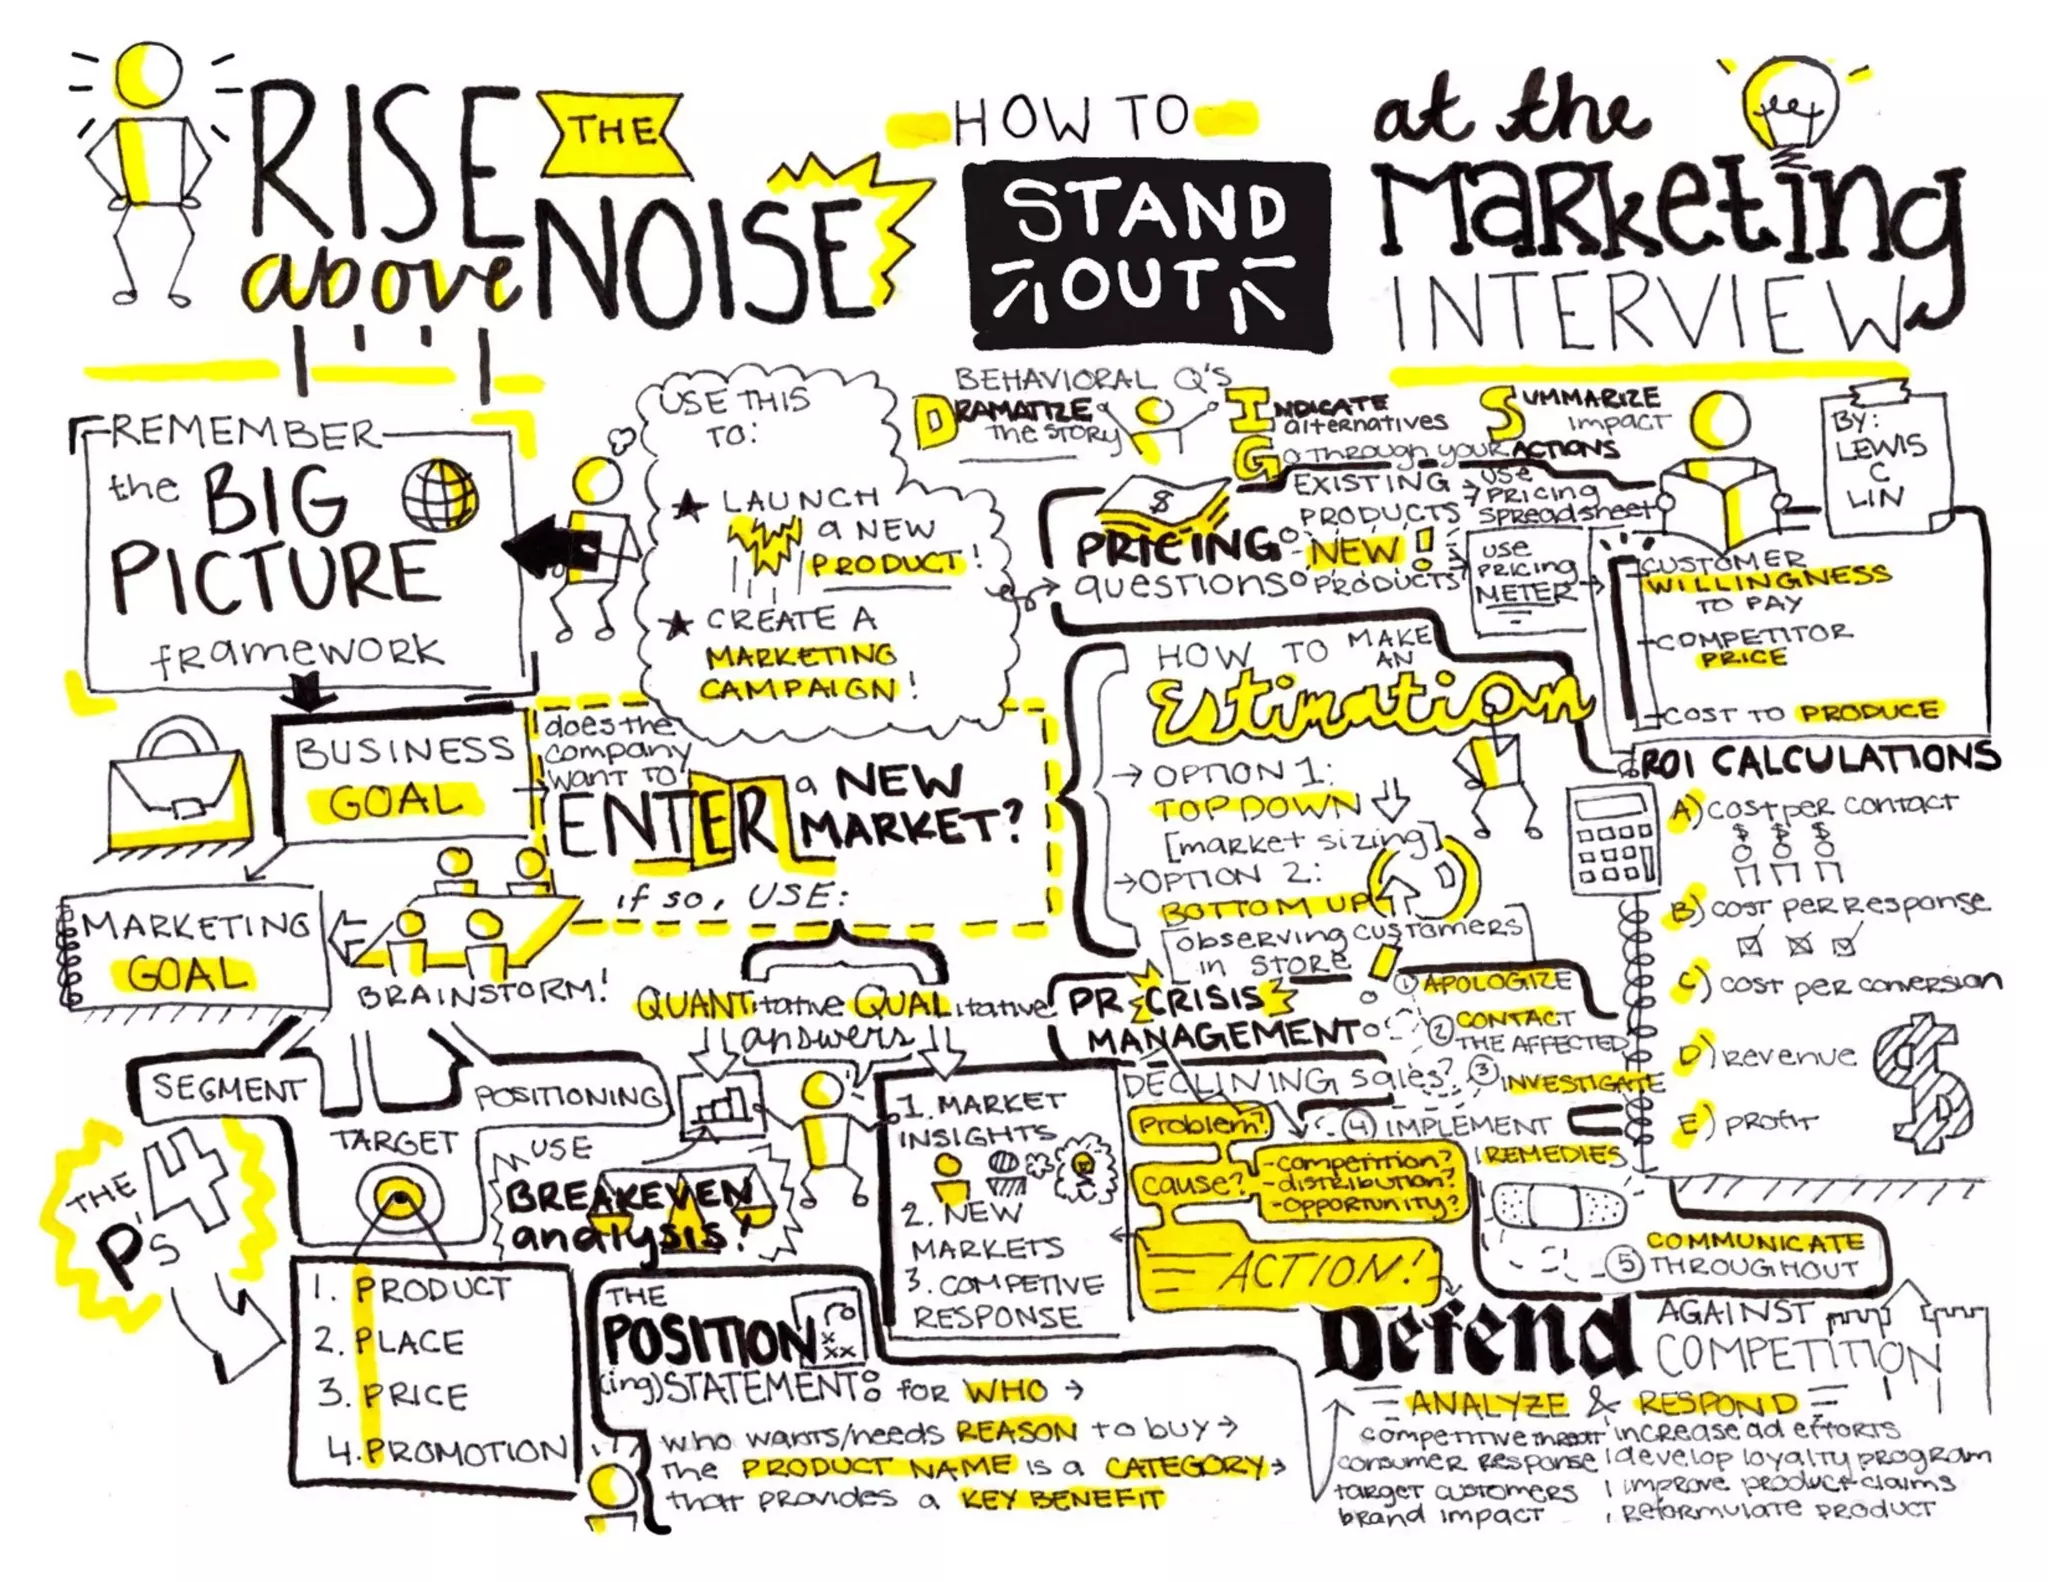 RISE THE
above NOISE
HOW TO
STAND
OUT
at the
MARKETING
INTERVIEW
BY:
LEWIS
C
LIN
REMEMBER
the BIG
PICTURE
framework
USE THIS
TO:
LAUNCH
a NEW
PRODUCT!
CREATE A
MARKETING
CAMPAIGN!
BEHAVIORAL Q'S
DRAMATIZE
the STORY
INDICATE
alternatives
GO through your ACTIONS
SUMMARIZE
impact
PRICING
questions
EXISTING
PRODUCTS
USE
PRICING
SPREADSHEET
NEW!
PRODUCTS
USE
PRICING
METER
CUSTOMER
WILLINGNESS
TO PAY
COMPETITOR
PRICE
COST TO PRODUCE
BUSINESS
GOAL
does the
company
WANT TO
ENTER a NEW
MARKET?
if so, USE:
MARKETING
GOAL
BRAINSTORM!
QUANTitative QUALitative
answers
HOW TO MAKE
AN
Estimation
OPTION 1:
TOP DOWN
[market sizing]
OPTION 2:
BOTTOM UP
observing customers
in STORE
ROI CALCULATIONS
A) cost per contact
$ $ $
B) cost per response
C) cost per conversion
D) revenue
E) profit
$
SEGMENT
TARGET
POSITIONING
THE
4
P'S
1. PRODUCT
2. PLACE
3. PRICE
4. PROMOTION
USE
BREAKEVEN
analysis!
1. MARKET
INSIGHTS
2. NEW
MARKETS
3. COMPETIVE
RESPONSE
PR CRISIS
MANAGEMENT
1 APOLOGIZE
2 CONTACT
THE AFFECTED
3 INVESTIGATE
4 IMPLEMENT
REMEDIES
5 COMMUNICATE
THROUGHOUT
DECLINING sales?
Problem?
cause?
-competition?
-distribution?
-opportunity?
ACTION!
THE
POSITION
(ing) STATEMENT: for WHO →
who wants/needs REASON to buy →
the PRODUCT NAME is a CATEGORY →
that provides a KEY BENEFIT
Defend AGAINST
COMPETITION
ANALYZE & RESPOND
competitive threat increase ad efforts
consumer response develop loyalty program
target customers improve product claims
brand impact reformulate product